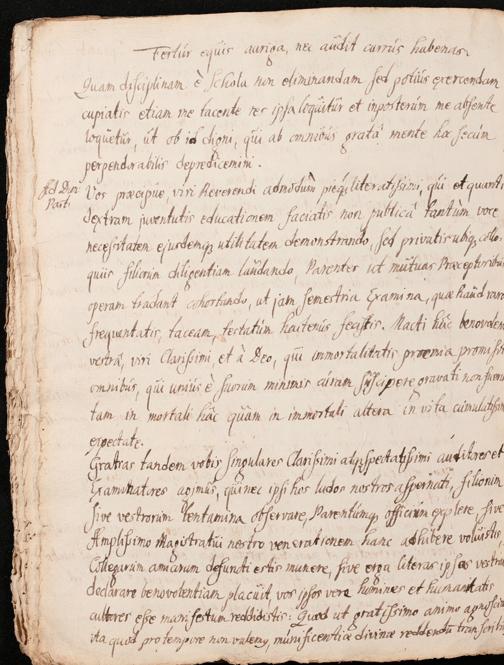 Fertur equis auriga, nec audit currus habenas.
Quam disciplinam è Schola non eliminandam sed potius exercendam
cupiatis etiam me tacente res ipsa loquitur et inposterum me absente
loquetur, ut ob id digni, qui ab omnibus gratâ mente hoc
depredicemini.
Ad Dni
Past.
Vos præcipue, viri Reverendi admodum literatissimi, qui et quanti
dextram juventutis educationem faciatis non publicâ tantùm voce
necessitatem ejusdemq; utilitatem demonstrando, sed privatis ubiq; collo-
quiis filiorum diligentiam laudando, Parentes ut mutuas Præceptoribus
operam tradant cohortando, ut jam semestria Examina, quæ haud raro
frequentatis, taceam, testatum hactenus fecistis. Macti hâc benevolen
vestrâ, viri Clarissimi, et à Deo, qui immortalitatis præmia promisit
omnibus, qui unius è suorum minimis curam suscipere gravati non fuer
tam in mortali hâc quàm in immortali altera in vita cumulatissi
expectate.
Gratias tandem vobis singulares Clarissimi atq; Spectatissimi auditores et
Examinatores agimus, qui nec ipsi hos ludos nostros aspernati, filiorum
sive vestrorum tentamina observare, Parentumq; officium explere, sive
Amplissimo Magistratui nostro venerationem hanc adhibere voluistis,
Collegarum amicorum defuncti estis munere, sive erga literas ipsas vestram
declarare benevolentiam placuit, vos ipsos vere homines et humanitatis
cultores esse manifestum reddidistis: Quod ut gratissimo animo agnosci
ita quod pro tempore non valemus, munificentiæ divinæ reddendum transcri